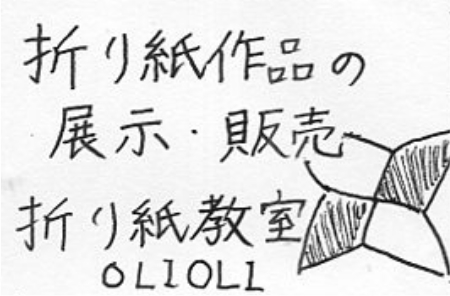 折り紙作品の
展示・販売
折り紙教室
OLIOLI